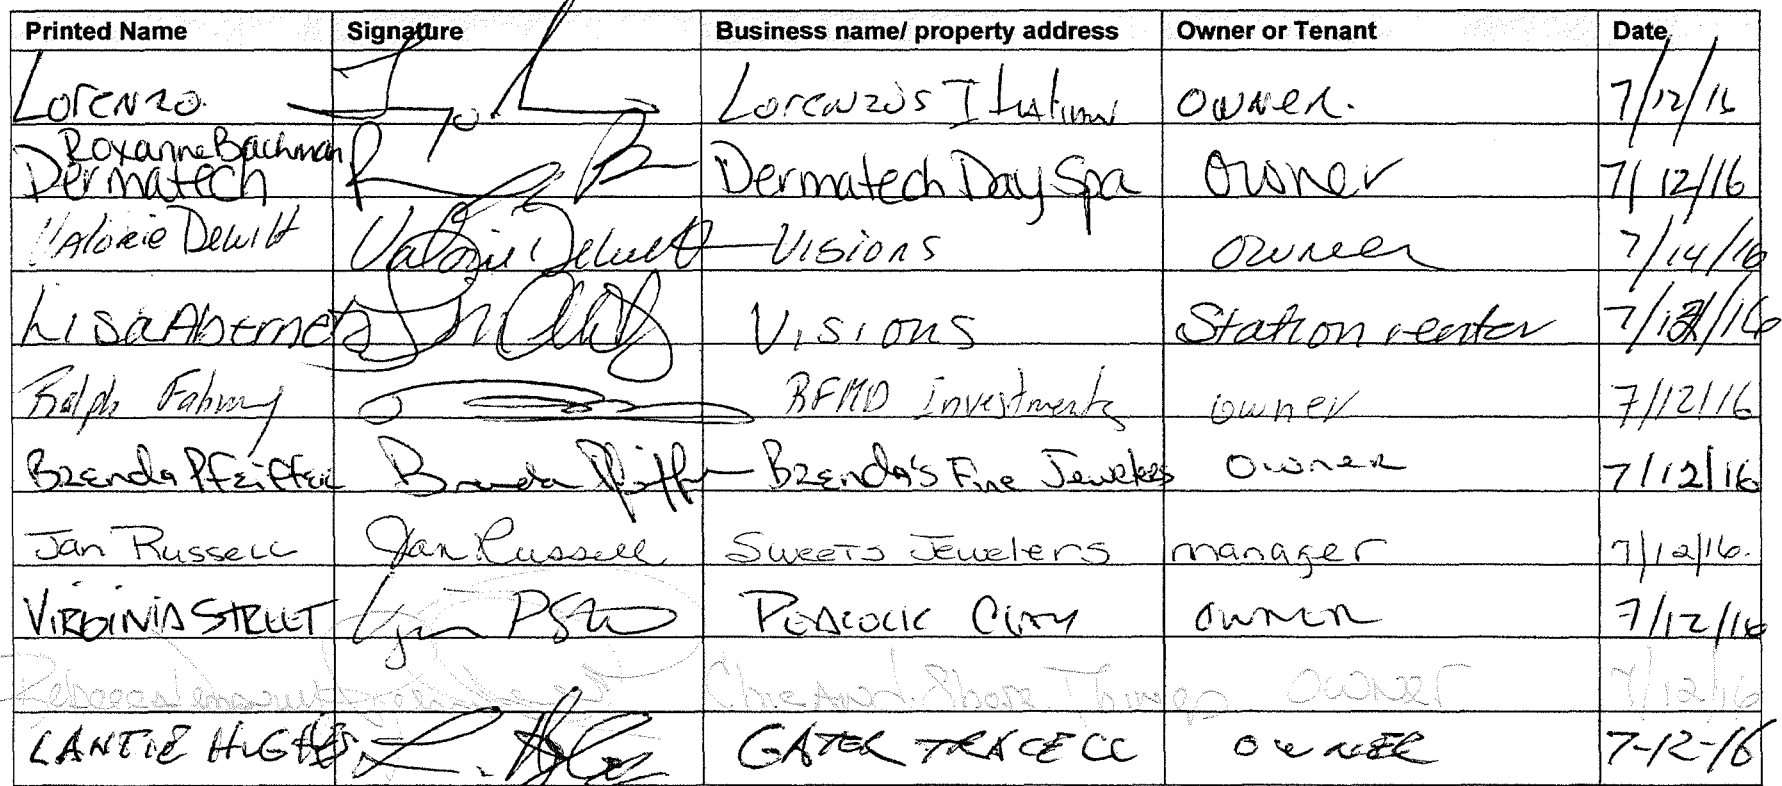 Printed Name Signature Business name/ property address Owner or Tenant Date
Lorenzo Lorenzo's Italian owner. 7/12/16
Roxanne Bachman
Dermatech Dermatech Day Spa Owner 7/12/16
Valorie Dewitt Valorie Dewitt Visions owner 7/14/16
Lisa Abernet Visions Station renter 7/12/16
Ralph Fahmy RFMD Investments owner 7/12/16
Brenda Pfeiffer Brenda Pfeiffer Brenda's Fine Jewelers Owner 7/12/16
Jan Russell Jan Russell Sweets Jewelers manager 7/12/16.
VIRGINIA STREET PEACOCK CLAY owner 7/12/16
Chic And Shore Things Owner 7/12/16
LANTIE HUGHES GATER TRACE CC OWNER 7-12-16